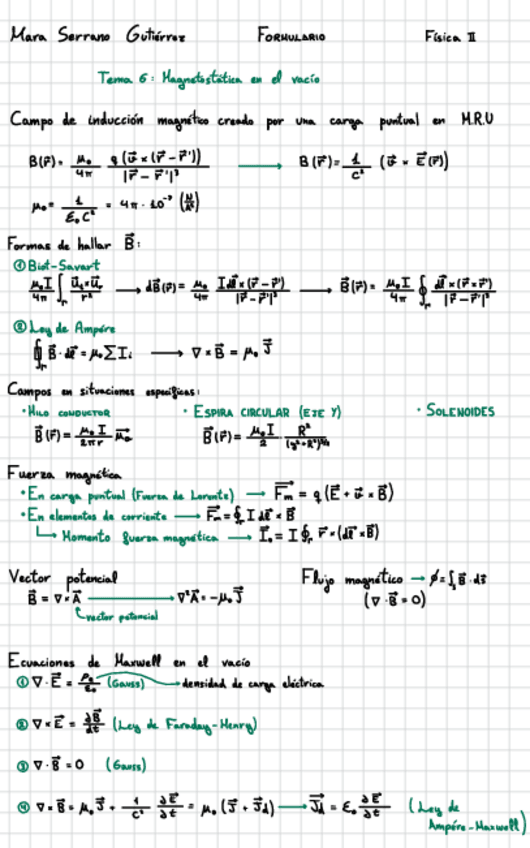 Mara Serrano Gutiérrez FORMULARIO Física II
Tema 6: Magnetostática en el vacío
Campo de inducción magnético creado por una carga puntual en M.R.U
B(r⃗) = μ₀/4π · q(v⃗ × (r⃗ − r⃗'))/|r⃗ − r⃗'|³ ⟶ B(r⃗) = 1/c² (v⃗ × E⃗(r⃗))
μ₀ = 1/(ε₀c²) = 4π · 10⁻⁷ (N/A²)
Formas de hallar B⃗:
① Biot-Savart
μ₀I/4π ∫_Γ (u⃗ₜ × u⃗ᵣ)/r² ⟶ dB⃗(r⃗) = μ₀/4π · Idl⃗ × (r⃗ − r⃗')/|r⃗ − r⃗'|³ ⟶ B⃗(r⃗) = μ₀I/4π ∮_Γ dl⃗ × (r⃗ × r⃗')/|r⃗ − r⃗'|³
② Ley de Ampére
∮_Γ B⃗ · dl⃗ = μ₀ΣIᵢ ⟶ ∇ × B⃗ = μ₀ J⃗
Campos en situaciones específicas:
· HILO CONDUCTOR · ESPIRA CIRCULAR (EJE Y) · SOLENOIDES
B⃗(r⃗) = μ₀I/2πr u⃗ᵩ B⃗(r⃗) = μ₀I/2 · R²/(y²+R²)^(3/2)
Fuerza magnética
· En carga puntual (Fuerza de Lorentz) ⟶ F⃗m = q(E⃗ + v⃗ × B⃗)
· En elementos de corriente ⟶ F⃗m = ∮_Γ I dl⃗ × B⃗
↳ Momento fuerza magnética ⟶ Γ⃗₀ = I ∮_Γ r⃗ × (dl⃗ × B⃗)
Vector potencial Flujo magnético → ϕ = ∫ₛ B⃗ · ds⃗
B⃗ = ∇ × A⃗ ⟶ ∇²A⃗ = −μ₀J⃗ (∇ · B⃗ = 0)
vector potencial
Ecuaciones de Maxwell en el vacío
① ∇ · E⃗ = ρ/ε₀ (Gauss) ⟶ densidad de carga eléctrica
② ∇ × E⃗ = ∂B⃗/dt (Ley de Faraday-Henry)
③ ∇ · B⃗ = 0 (Gauss)
④ ∇ × B⃗ = μ₀ J⃗ + 1/c² ∂E⃗/∂t = μ₀ (J⃗ + J⃗d) ⟶ J⃗d = ε₀ ∂E⃗/∂t (Ley de
Ampére-Maxwell)